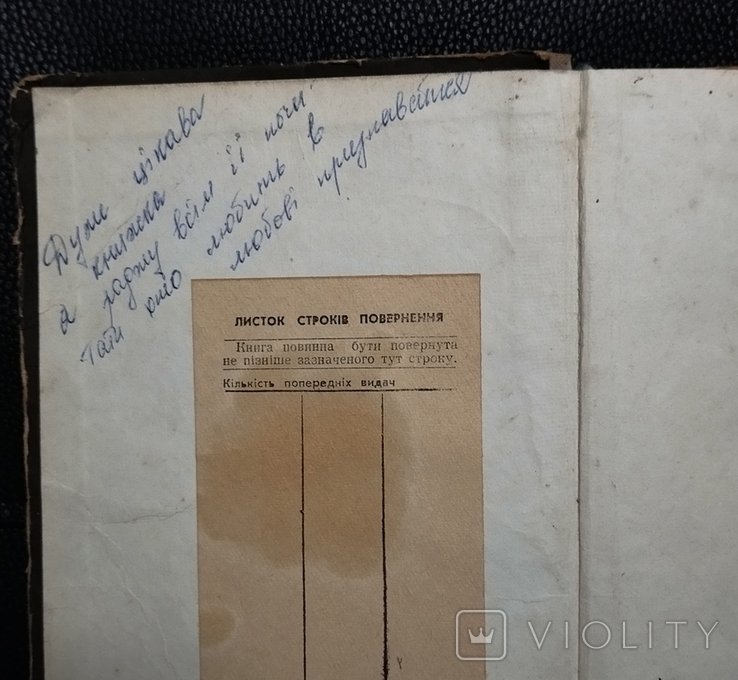 Дуже цікава
книжка
а раджу всім її почи
тати хто любить в
любові признаватися
ЛИСТОК СТРОКІВ ПОВЕРНЕННЯ
Книга повинна бути повернута
не пізніше зазначеного тут строку.
Кількість попередніх видач
VIOLITY